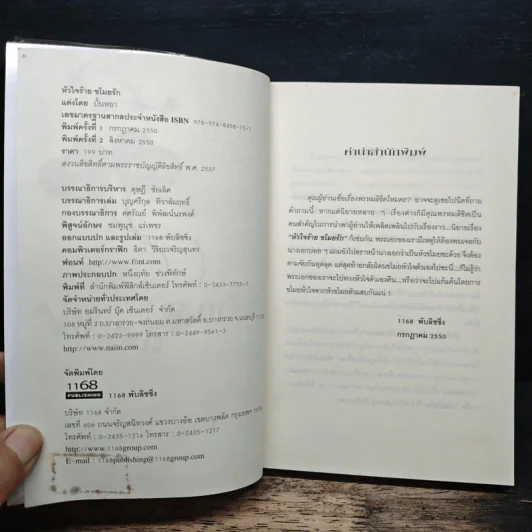 หัวใจร้าย ขโมยรัก
แต่งโดย ปั้นหยา
เลขมาตรฐานสากลประจำหนังสือ ISBN 978-974-8458-15-1
พิมพ์ครั้งที่ 1 กรกฎาคม 2550
พิมพ์ครั้งที่ 2 สิงหาคม 2550
ราคา 199 บาท
สงวนลิขสิทธิ์ตามพระราชบัญญัติลิขสิทธิ์ พ.ศ. 2537
บรรณาธิการบริหาร ดุษฎี
บรรณาธิการเล่ม บุญศรีกุล
กองบรรณาธิการ
พิสูจน์อักษร ชมพูนุช
ออกแบบปก และรูปเล่ม 1168 พับลิชชิ่ง
คอมพิวเตอร์กราฟิก ธิดา วิริยะเจริญสุนทร
ฟอนท์ http://www.font.com
ภาพประกอบปก หนึ่งฤทัย ช่วงพิทักษ์
พิมพ์ที่ สำนักพิมพ์ฟิสิกส์เซ็นเตอร์ โทรศัพท์ : 0-2433-7755-7
จัดจำหน่ายทั่วประเทศโดย
บริษัท อมรินทร์ บุ๊ค เซ็นเตอร์ จำกัด
108 หมู่ที่ 2 ถ.บางกรวย-จงถนอม ต.มหาสวัสดิ์ อ.บางกรวย จ.นนทบุรี
โทรศัพท์ : 0-2423-9999 โทรสาร : 0-2449-9561-3
http://www.naiin.com
จัดพิมพ์โดย
1168
PUBLISHING 1168 พับลิชชิ่ง
บริษัท 1168 จำกัด
เลขที่ 606 ถนนจรัญสนิทวงศ์ แขวงบางอ้อ เขตบางพลัด กรุงเทพฯ 10700
โทรศัพท์ : 0-2435-1216 โทรสาร : 0-2435-1217
http://www.1168group.com
E-mail : 1168publishing@1168group.com
คำนำสำนักพิมพ์
คุณผู้อ่านเชื่อเรื่องพรหมลิขิตไหมคะ? อาจจะดูเชยไปนิดที่ถาม
คำถามนี้ หากแต่นิยายหลาย ๆ เรื่องต่างก็มีคุณพรหมลิขิตเป็น
คนสำคัญในการนำพาผู้อ่านให้เพลิดเพลินไปกับเรื่องราว...นิยายเรื่อง
"หัวใจร้าย ขโมยรัก" ก็เช่นกัน พระเอกของเรามีเหตุให้ต้องพบเจอกับ
นางเอกบ่อย ๆ แถมยังไปตราหน้านางเอกว่าเป็นหัวขโมยซะด้วย จึงต้อง
ตามจับกันอุตลุด แต่สุดท้ายกลับโดนขโมยหัวใจตัวเองไปซะนี่...ก็ไม่รู้ว่า
พระเอกของเราจะไปทวงหัวใจตัวเองคืน...หรือว่าจะไปแก้แค้นโดยการ
ขโมยหัวใจจากหัวขโมยตัวแสบกันแน่ !
1168 พับลิชชิ่ง
กรกฎาคม 2550